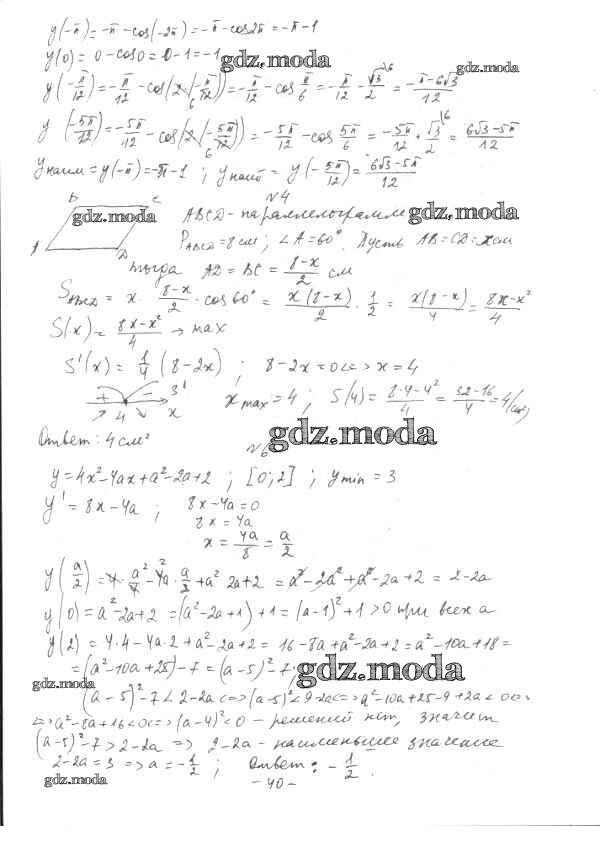 y(-π) = -π - cos(-2π) = -π - cos2π = -π - 1
y(0) = 0 - cos0 = 0 - 1 = -1
gdz.moda
gdz.moda
y(-π/12) = -π/12 - cos(2(-π/12)) = -π/12 - cos π/6 = -π/12 - √3/2 = (-π-6√3)/12
y(-5π/12) = -5π/12 - cos(2(-5π/12)) = -5π/12 - cos 5π/6 = -5π/12 + √3/2 = (6√3-5π)/12
yнаим = y(-π) = -π-1 ; yнаиб = y(-5π/12) = (6√3-5π)/12
№4
B C
gdz.moda
A D
ABCD - параллелограмм
gdz.moda
PABCD = 8 см ; ∠A = 60°. Пусть AB = CD = x см
тогда AD = BC = (8-x)/2 см
SABCD = x · (8-x)/2 · cos60° = x(8-x)/2 · 1/2 = x(8-x)/4 = (8x-x²)/4
S(x) = (8x-x²)/4 → max
S'(x) = 1/4 (8-2x) ; 8-2x = 0 <=> x = 4
+ - S'
4 x
xmax = 4 ; S(4) = (8·4-4²)/4 = (32-16)/4 = 4 (см²)
Ответ: 4 см²
gdz.moda
№6
y = 4x²-4ax+a²-2a+2 ; [0;2] ; ymin = 3
y' = 8x-4a ; 8x-4a = 0
8x = 4a
x = 4a/8 = a/2
y(a/2) = 4·a²/4 - 4a·a/2 + a² 2a+2 = a²-2a²+a²-2a+2 = 2-2a
y(0) = a²-2a+2 = (a²-2a+1)+1 = (a-1)²+1 > 0 при всех a
y(2) = 4·4-4a·2+a²-2a+2 = 16-8a+a²-2a+2 = a²-10a+18 =
= (a²-10a+25)-7 = (a-5)²-7 ;
gdz.moda
gdz.moda
(a-5)²-7 < 2-2a <=> (a-5)² < 9-2a <=> a²-10a+25-9+2a < 0 <=>
<=> a²-8a+16 < 0 <=> (a-4)² < 0 - решений нет, значит
(a-5)²-7 > 2-2a => 2-2a - наименьшее значение
2-2a = 3 => a = -1/2 ; Ответ: -1/2.
gdz.moda
-40-